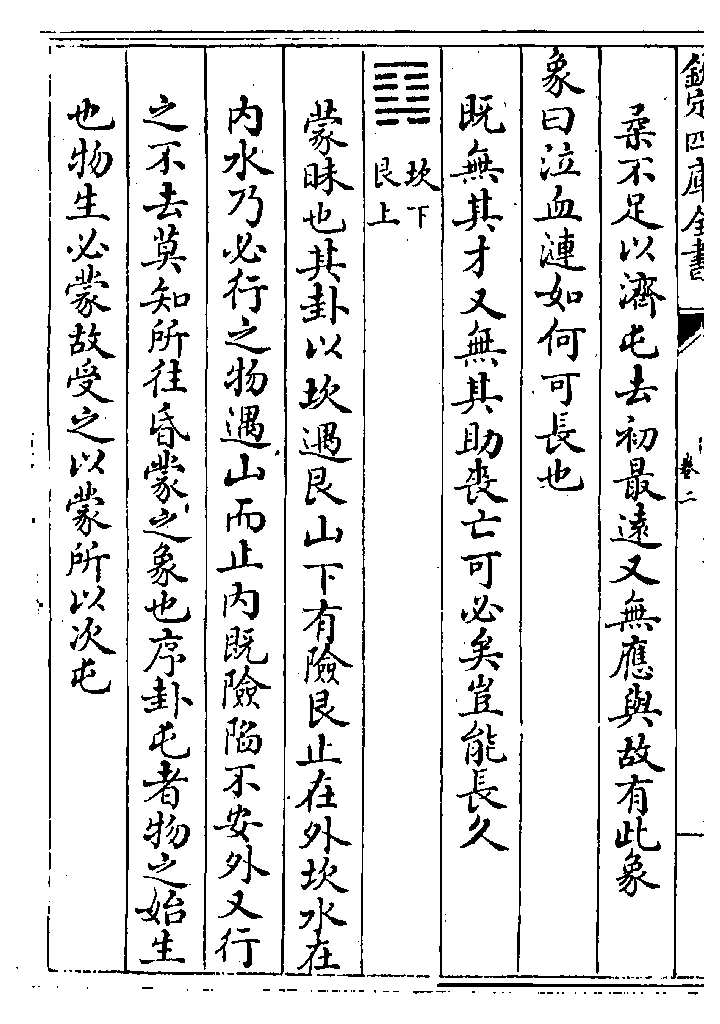 欽定四庫全書
卷二
柔不足以濟屯去初最遠又無應與故有此象
象曰泣血漣如何可長也
既無其才又無其助喪亡可必矣豈能長久
䷃
坎下
艮上
蒙昧也其卦以坎遇艮山下有險艮止在外坎水在
内水乃必行之物遇山而止内既險陷不安外又行
之不去莫知所往昏蒙之象也序卦屯者物之始生
也物生必蒙故受之以蒙所以次屯